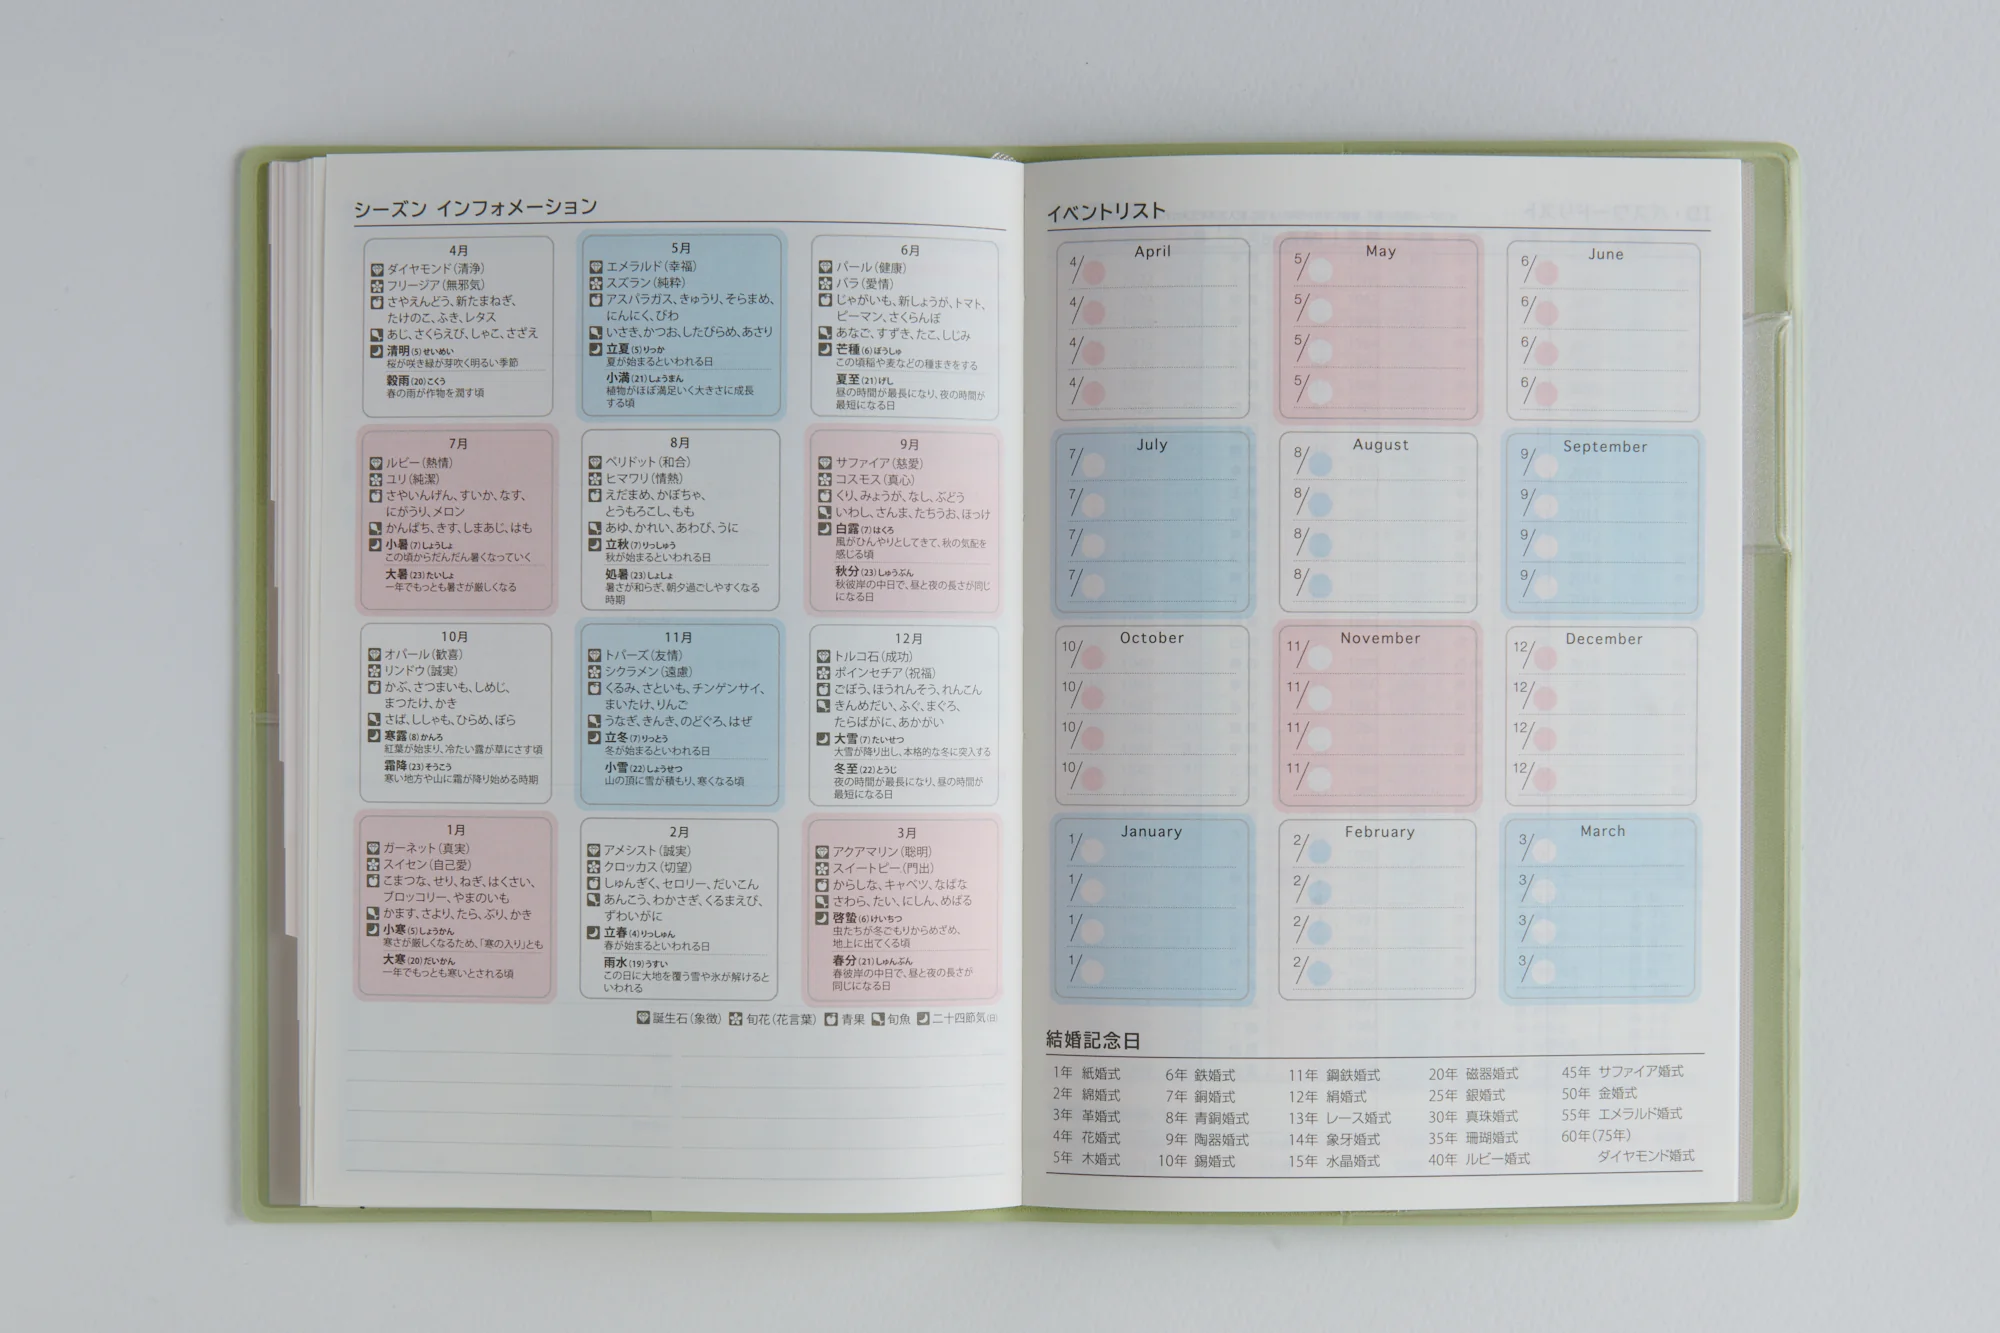 シーズン インフォメーション
4月
ダイヤモンド(清浄)
フリージア(無邪気)
さやえんどう、新たまねぎ、
たけのこ、ふき、レタス
あじ、さくらえび、しゃこ、さざえ
清明(5)せいめい
桜が咲き緑が芽吹く明るい季節
穀雨(20)こくう
春の雨が作物を潤す頃
5月
エメラルド(幸福)
スズラン(純粋)
アスパラガス、きゅうり、そらまめ、
にんにく、びわ
いさき、かつお、したびらめ、あさり
立夏(5)りっか
夏が始まるといわれる日
小満(21)しょうまん
植物がほぼ満足いく大きさに成長
する頃
6月
パール(健康)
バラ(愛情)
じゃがいも、新しょうが、トマト、
ピーマン、さくらんぼ
あなご、すずき、たこ、しじみ
芒種(6)ぼうしゅ
この頃稲や麦などの種まきをする
夏至(21)げし
昼の時間が最長になり、夜の時間が
最短になる日
7月
ルビー(熱情)
ユリ(純潔)
さやいんげん、すいか、なす、
にがうり、メロン
かんぱち、きす、しまあじ、はも
小暑(7)しょうしょ
この頃からだんだん暑くなっていく
大暑(23)たいしょ
一年でもっとも暑さが厳しくなる
8月
ペリドット(和合)
ヒマワリ(情熱)
えだまめ、かぼちゃ、
とうもろこし、もも
あゆ、かれい、あわび、うに
立秋(7)りっしゅう
秋が始まるといわれる日
処暑(23)しょしょ
暑さが和らぎ、朝夕過ごしやすくなる
時期
9月
サファイア(慈愛)
コスモス(真心)
くり、みょうが、なし、ぶどう
いわし、さんま、たちうお、ほっけ
白露(7)はくろ
風がひんやりとしてきて、秋の気配を
感じる頃
秋分(23)しゅうぶん
秋彼岸の中日で、昼と夜の長さが同じ
になる日
10月
オパール(歓喜)
リンドウ(誠実)
かぶ、さつまいも、しめじ、
まつたけ、かき
さば、ししゃも、ひらめ、ぼら
寒露(8)かんろ
紅葉が始まり、冷たい露が草にさす頃
霜降(23)そうこう
寒い地方や山に霜が降り始める時期
11月
トパーズ(友情)
シクラメン(遠慮)
くるみ、さといも、チンゲンサイ、
まいたけ、りんご
うなぎ、きんき、のどぐろ、はぜ
立冬(7)りっとう
冬が始まるといわれる日
小雪(22)しょうせつ
山の頂に雪が積もり、寒くなる頃
12月
トルコ石(成功)
ポインセチア(祝福)
ごぼう、ほうれんそう、れんこん
きんめだい、ふぐ、まぐろ、
たらばがに、あかがい
大雪(7)たいせつ
大雪が降り出し、本格的な冬に突入する
冬至(22)とうじ
夜の時間が最長になり、昼の時間が
最短になる日
1月
ガーネット(真実)
スイセン(自己愛)
こまつな、せり、ねぎ、はくさい、
ブロッコリー、やまのいも
かます、さより、たら、ぶり、かき
小寒(5)しょうかん
寒さが厳しくなるため、「寒の入り」とも
大寒(20)だいかん
一年でもっとも寒いとされる頃
2月
アメシスト(誠実)
クロッカス(切望)
しゅんぎく、セロリー、だいこん
あんこう、わかさぎ、くるまえび、
ずわいがに
立春(4)りっしゅん
春が始まるといわれる日
雨水(19)うすい
この日に大地を覆う雪や氷が解けると
いわれる
3月
アクアマリン(聡明)
スイートピー(門出)
からしな、キャベツ、なばな
さわら、たい、にしん、めばる
啓蟄(6)けいちつ
虫たちが冬ごもりからめざめ、
地上に出てくる頃
春分(21)しゅんぶん
春彼岸の中日で、昼と夜の長さが
同じになる日
誕生石(象徴) 旬花(花言葉) 青果 旬魚 二十四節気(日)
イベントリスト
April
4/
4/
4/
4/
May
5/
5/
5/
5/
June
6/
6/
6/
6/
July
7/
7/
7/
7/
August
8/
8/
8/
8/
September
9/
9/
9/
9/
October
10/
10/
10/
10/
November
11/
11/
11/
11/
December
12/
12/
12/
12/
January
1/
1/
1/
1/
February
2/
2/
2/
2/
March
3/
3/
3/
3/
結婚記念日
1年 紙婚式
2年 綿婚式
3年 革婚式
4年 花婚式
5年 木婚式
6年 鉄婚式
7年 銅婚式
8年 青銅婚式
9年 陶器婚式
10年 錫婚式
11年 鋼鉄婚式
12年 絹婚式
13年 レース婚式
14年 象牙婚式
15年 水晶婚式
20年 磁器婚式
25年 銀婚式
30年 真珠婚式
35年 珊瑚婚式
40年 ルビー婚式
45年 サファイア婚式
50年 金婚式
55年 エメラルド婚式
60年(75年)
ダイヤモンド婚式